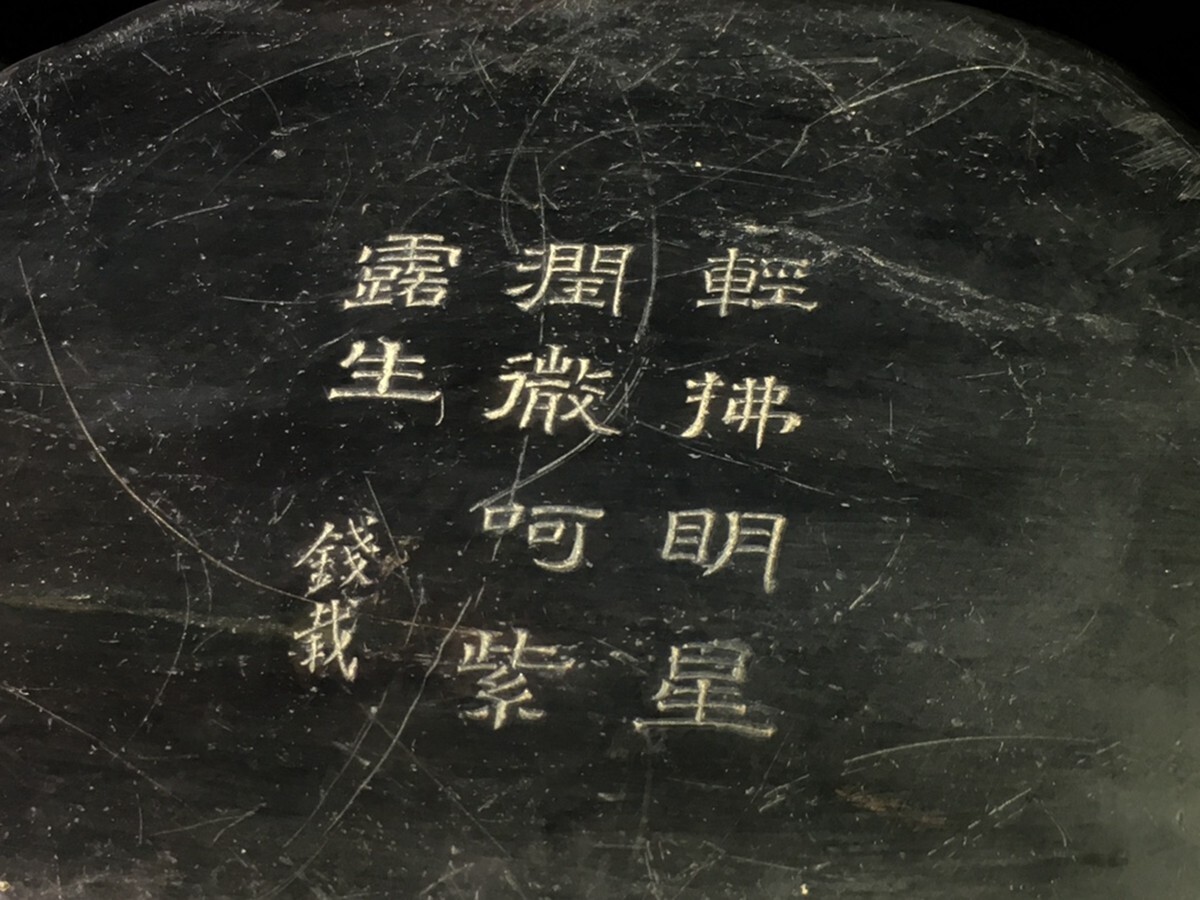 輕拂明星
潤微呵紫
露生
錢栽